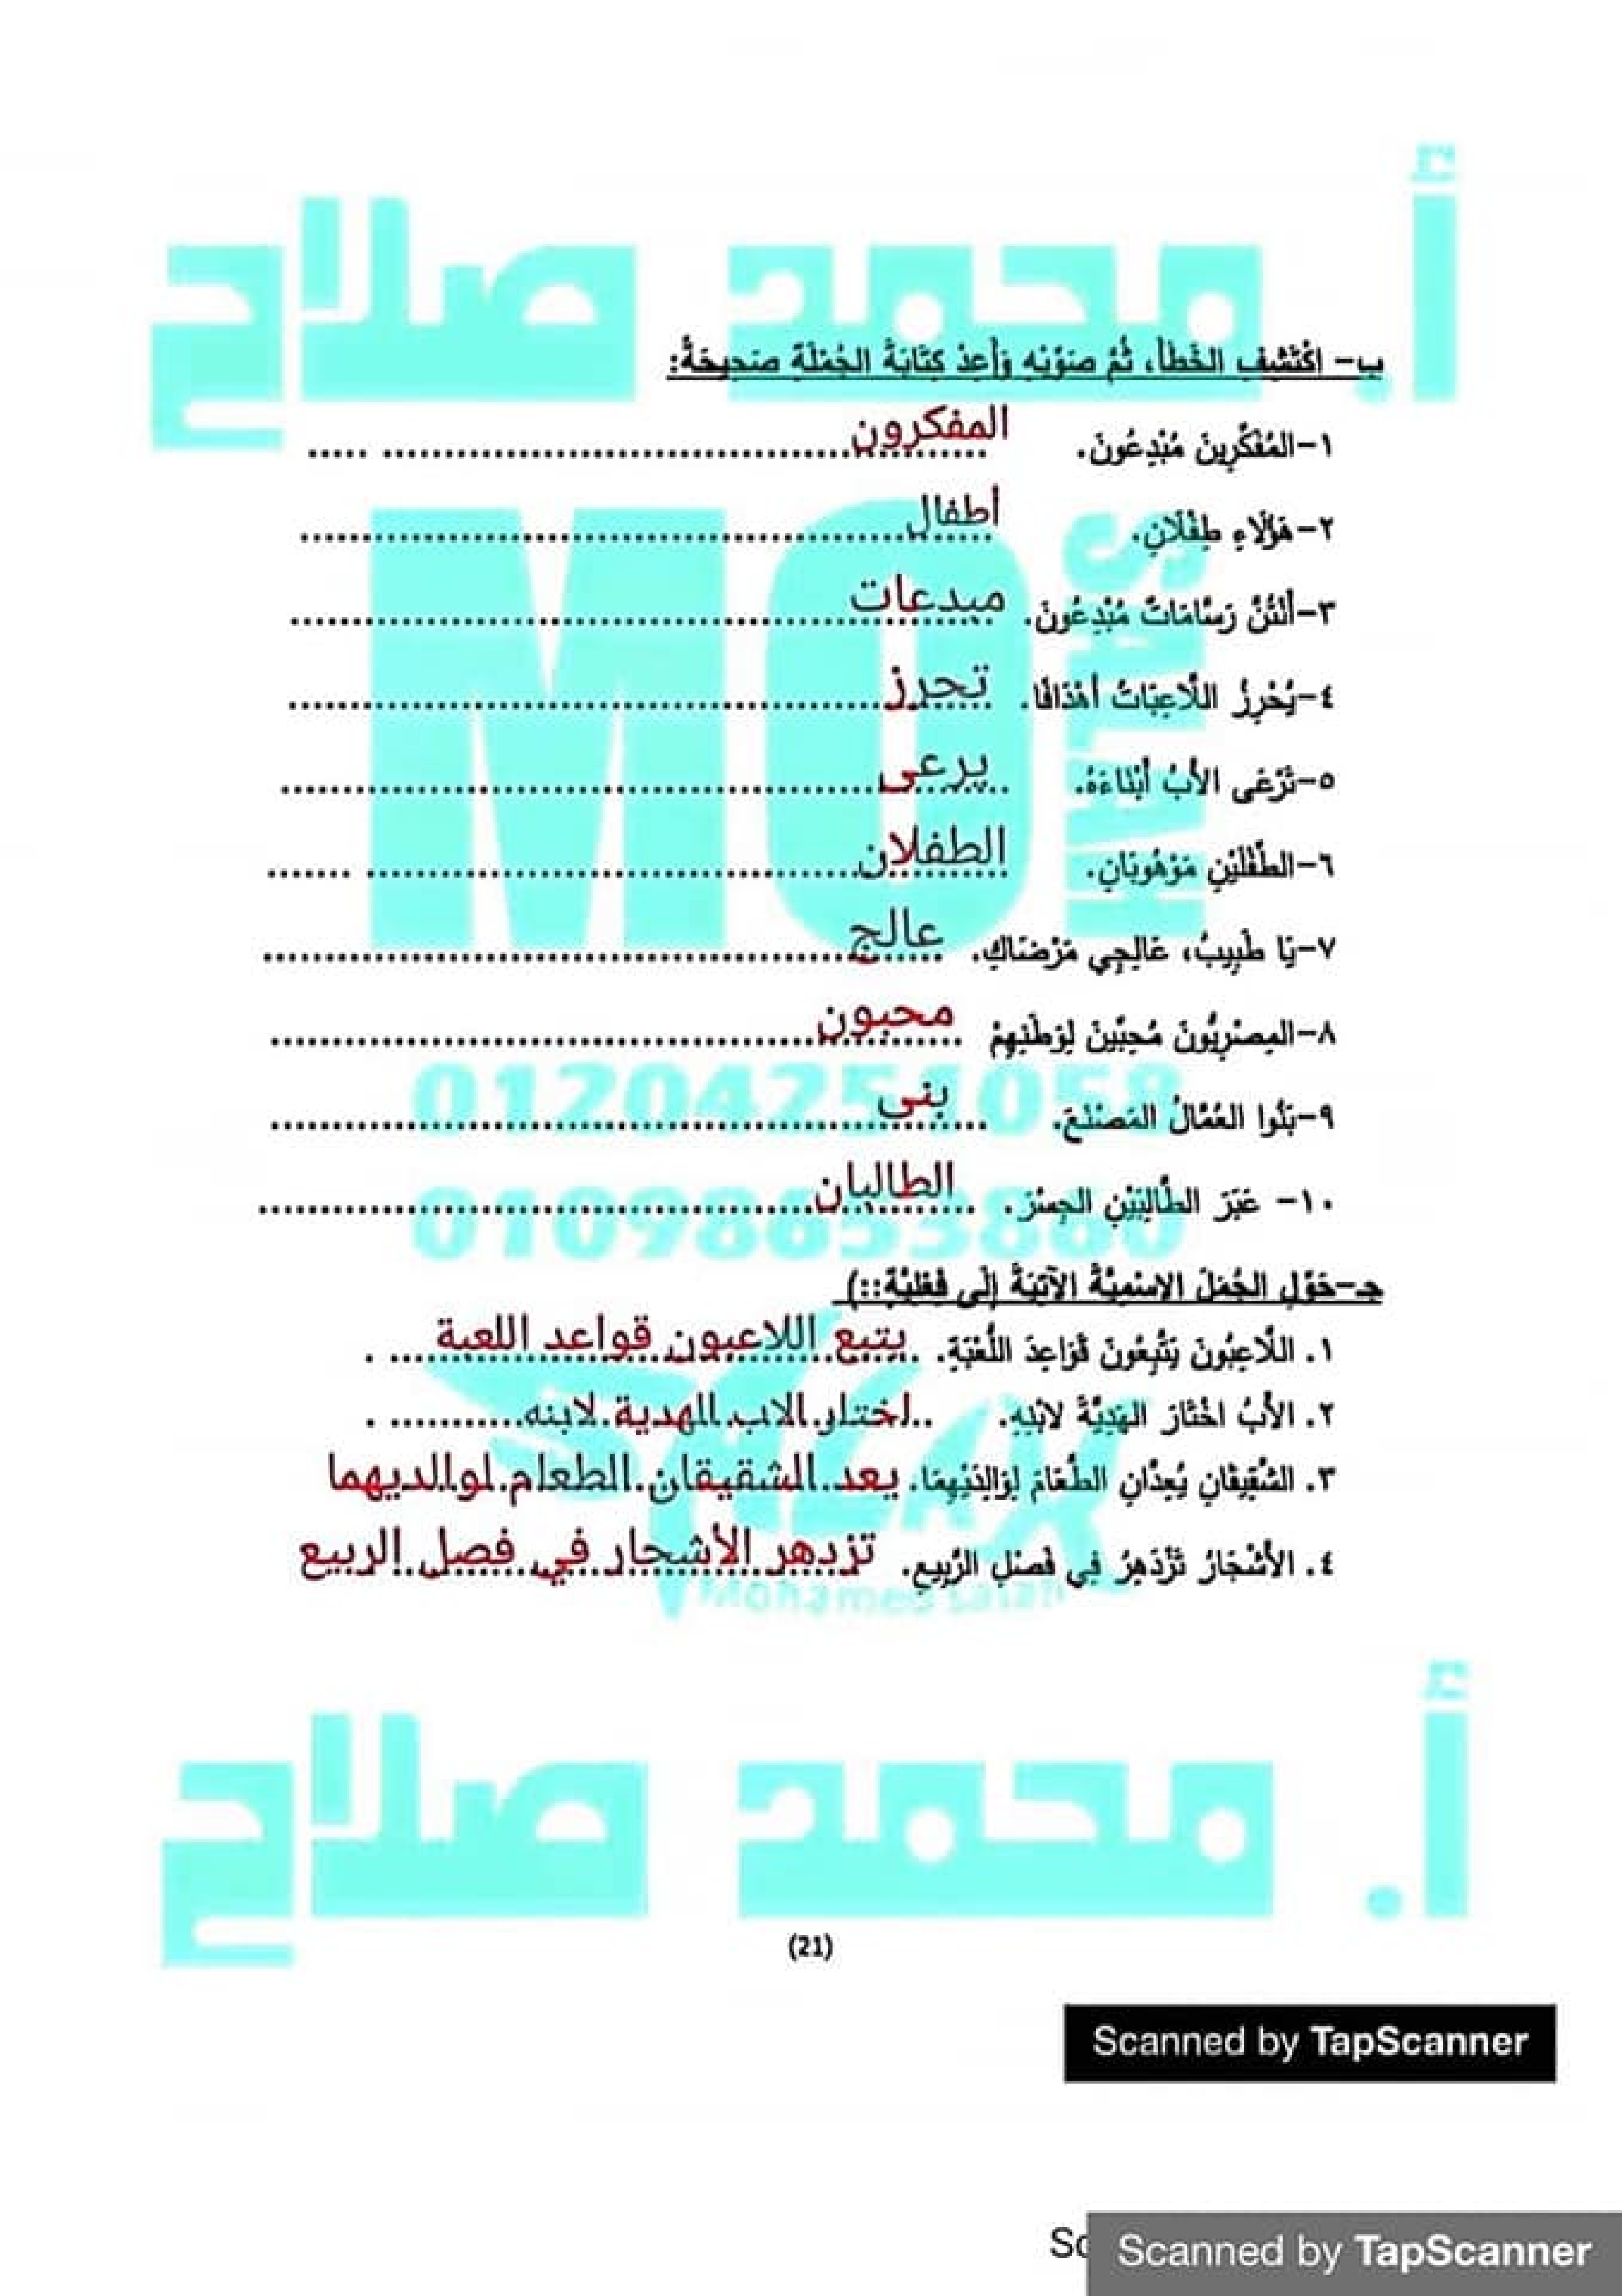 أ. محمد صلاح
ب- اكْتَشِفِ الخَطَأَ، ثُمَّ صَوِّبْهِ وَأَعِدْ كِتَابَةَ الجُمْلَةِ صَحِيحَةً:
١-المُفَكِّرِينَ مُبْدِعُونَ. المفكرون
٢-هَؤُلَاءِ طِفْلَانِ. أطفال
٣-أَنْتُنَّ رَسَّامَاتٌ مُبْدِعُونَ. مبدعات
٤-يُحْرِزُ اللَّاعِبَاتُ أَهْدَافًا. تحرز
٥-تَرْعَى الأَبُ أَبْنَاءَهُ. يرعى
٦-الطِّفْلَيْنِ مَوْهُوبَانِ. الطفلان
٧-يَا طَبِيبُ، عَالِجِي مَرْضَاكِ. عالج
٨-المِصْرِيُّونَ مُحِبِّينَ لِوَطَنِهِمْ محبون
٩-بَنُوا العُمَّالُ المَصْنَعَ. بنى
١٠- عَبَرَ الطَّالِبَيْنِ الجِسْرَ. الطالبان
جـ-حَوِّلِ الجُمَلَ الِاسْمِيَّةَ الآتِيَةَ إِلَى فِعْلِيَّةٍ::)
١. اللَّاعِبُونَ يَتَّبِعُونَ قَوَاعِدَ اللُّعْبَةِ. يتبع اللاعبون قواعد اللعبة
٢. الأَبُ اخْتَارَ الهَدِيَّةَ لابْنِهِ. اختار الاب الهدية لابنه
٣. الشَّقِيقَانِ يُعِدَّانِ الطَّعَامَ لِوَالِدَيْهِمَا. يعد الشقيقان الطعام لوالديهما
٤. الأَشْجَارُ تَزْدَهِرُ فِي فَصْلِ الرَّبِيعِ. تزدهر الأشجار في فصل الربيع
MO SALAH
01204251058
01098653860
Mohamed salah
أ. محمد صلاح
(21)
Scanned by TapScanner
Scanned by TapScanner